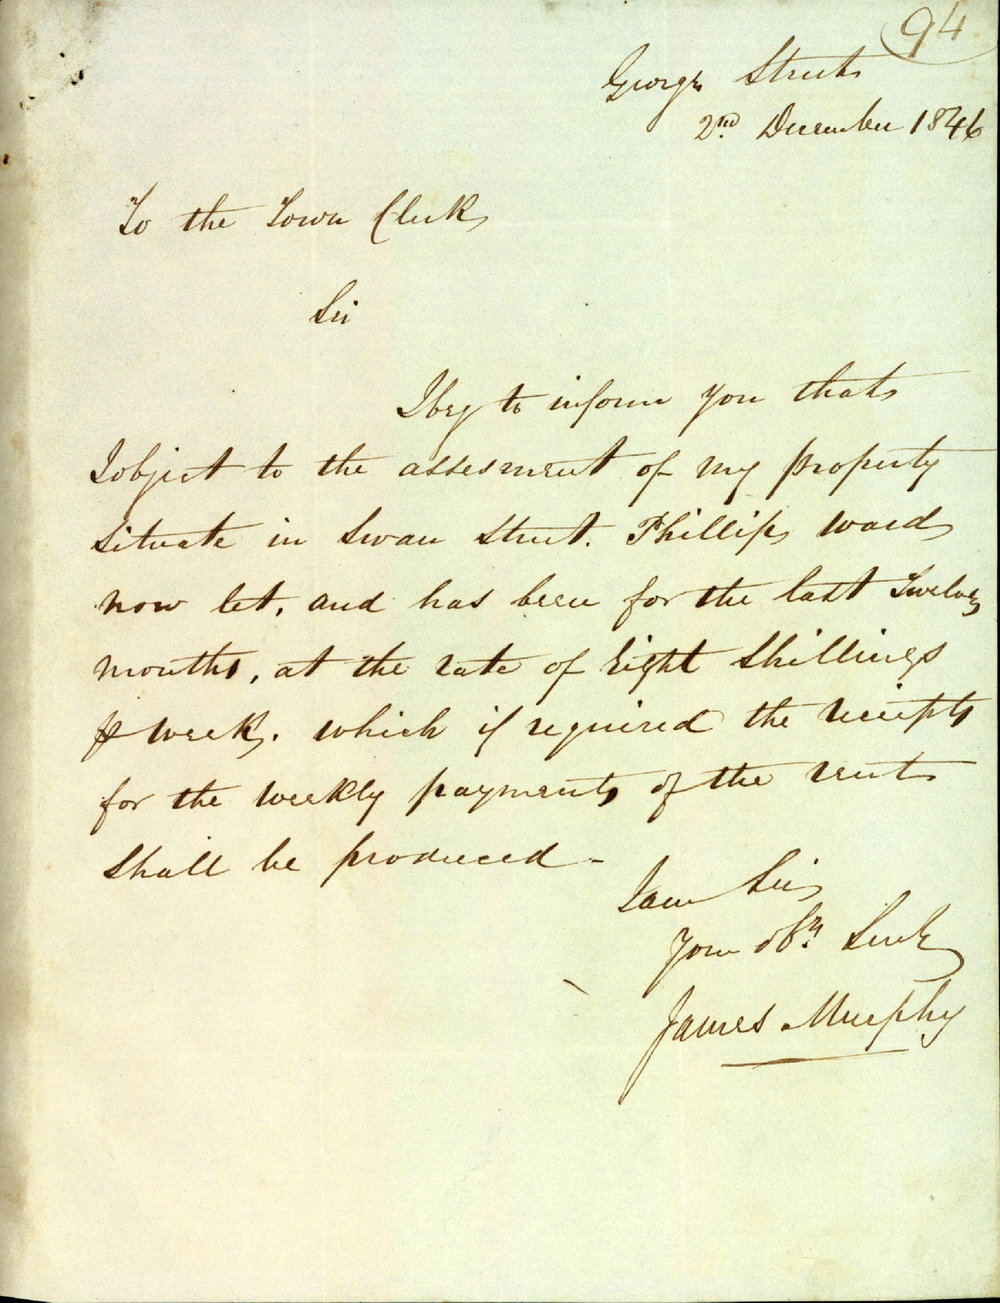 94
George Street
2nd December 1846
To the Town Clerk
Sir
I beg to inform you that
I object to the assesment of my property
situate in Swan Street. Phillip ward
now let, and has been for the last Twelve
months, at the rate of Eight Shillings
℔ week. which if required the receipts
for the weekly payments of the rent
shall be produced -
I am Sir
Your Obt. Servt
James Murphy